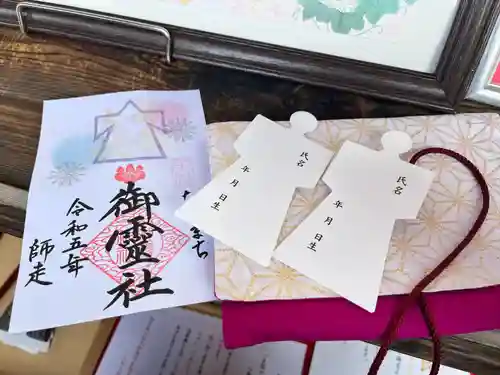 御霊社
令和五年
師走
まち
氏名
年 月 日生
氏名
年 月 日生